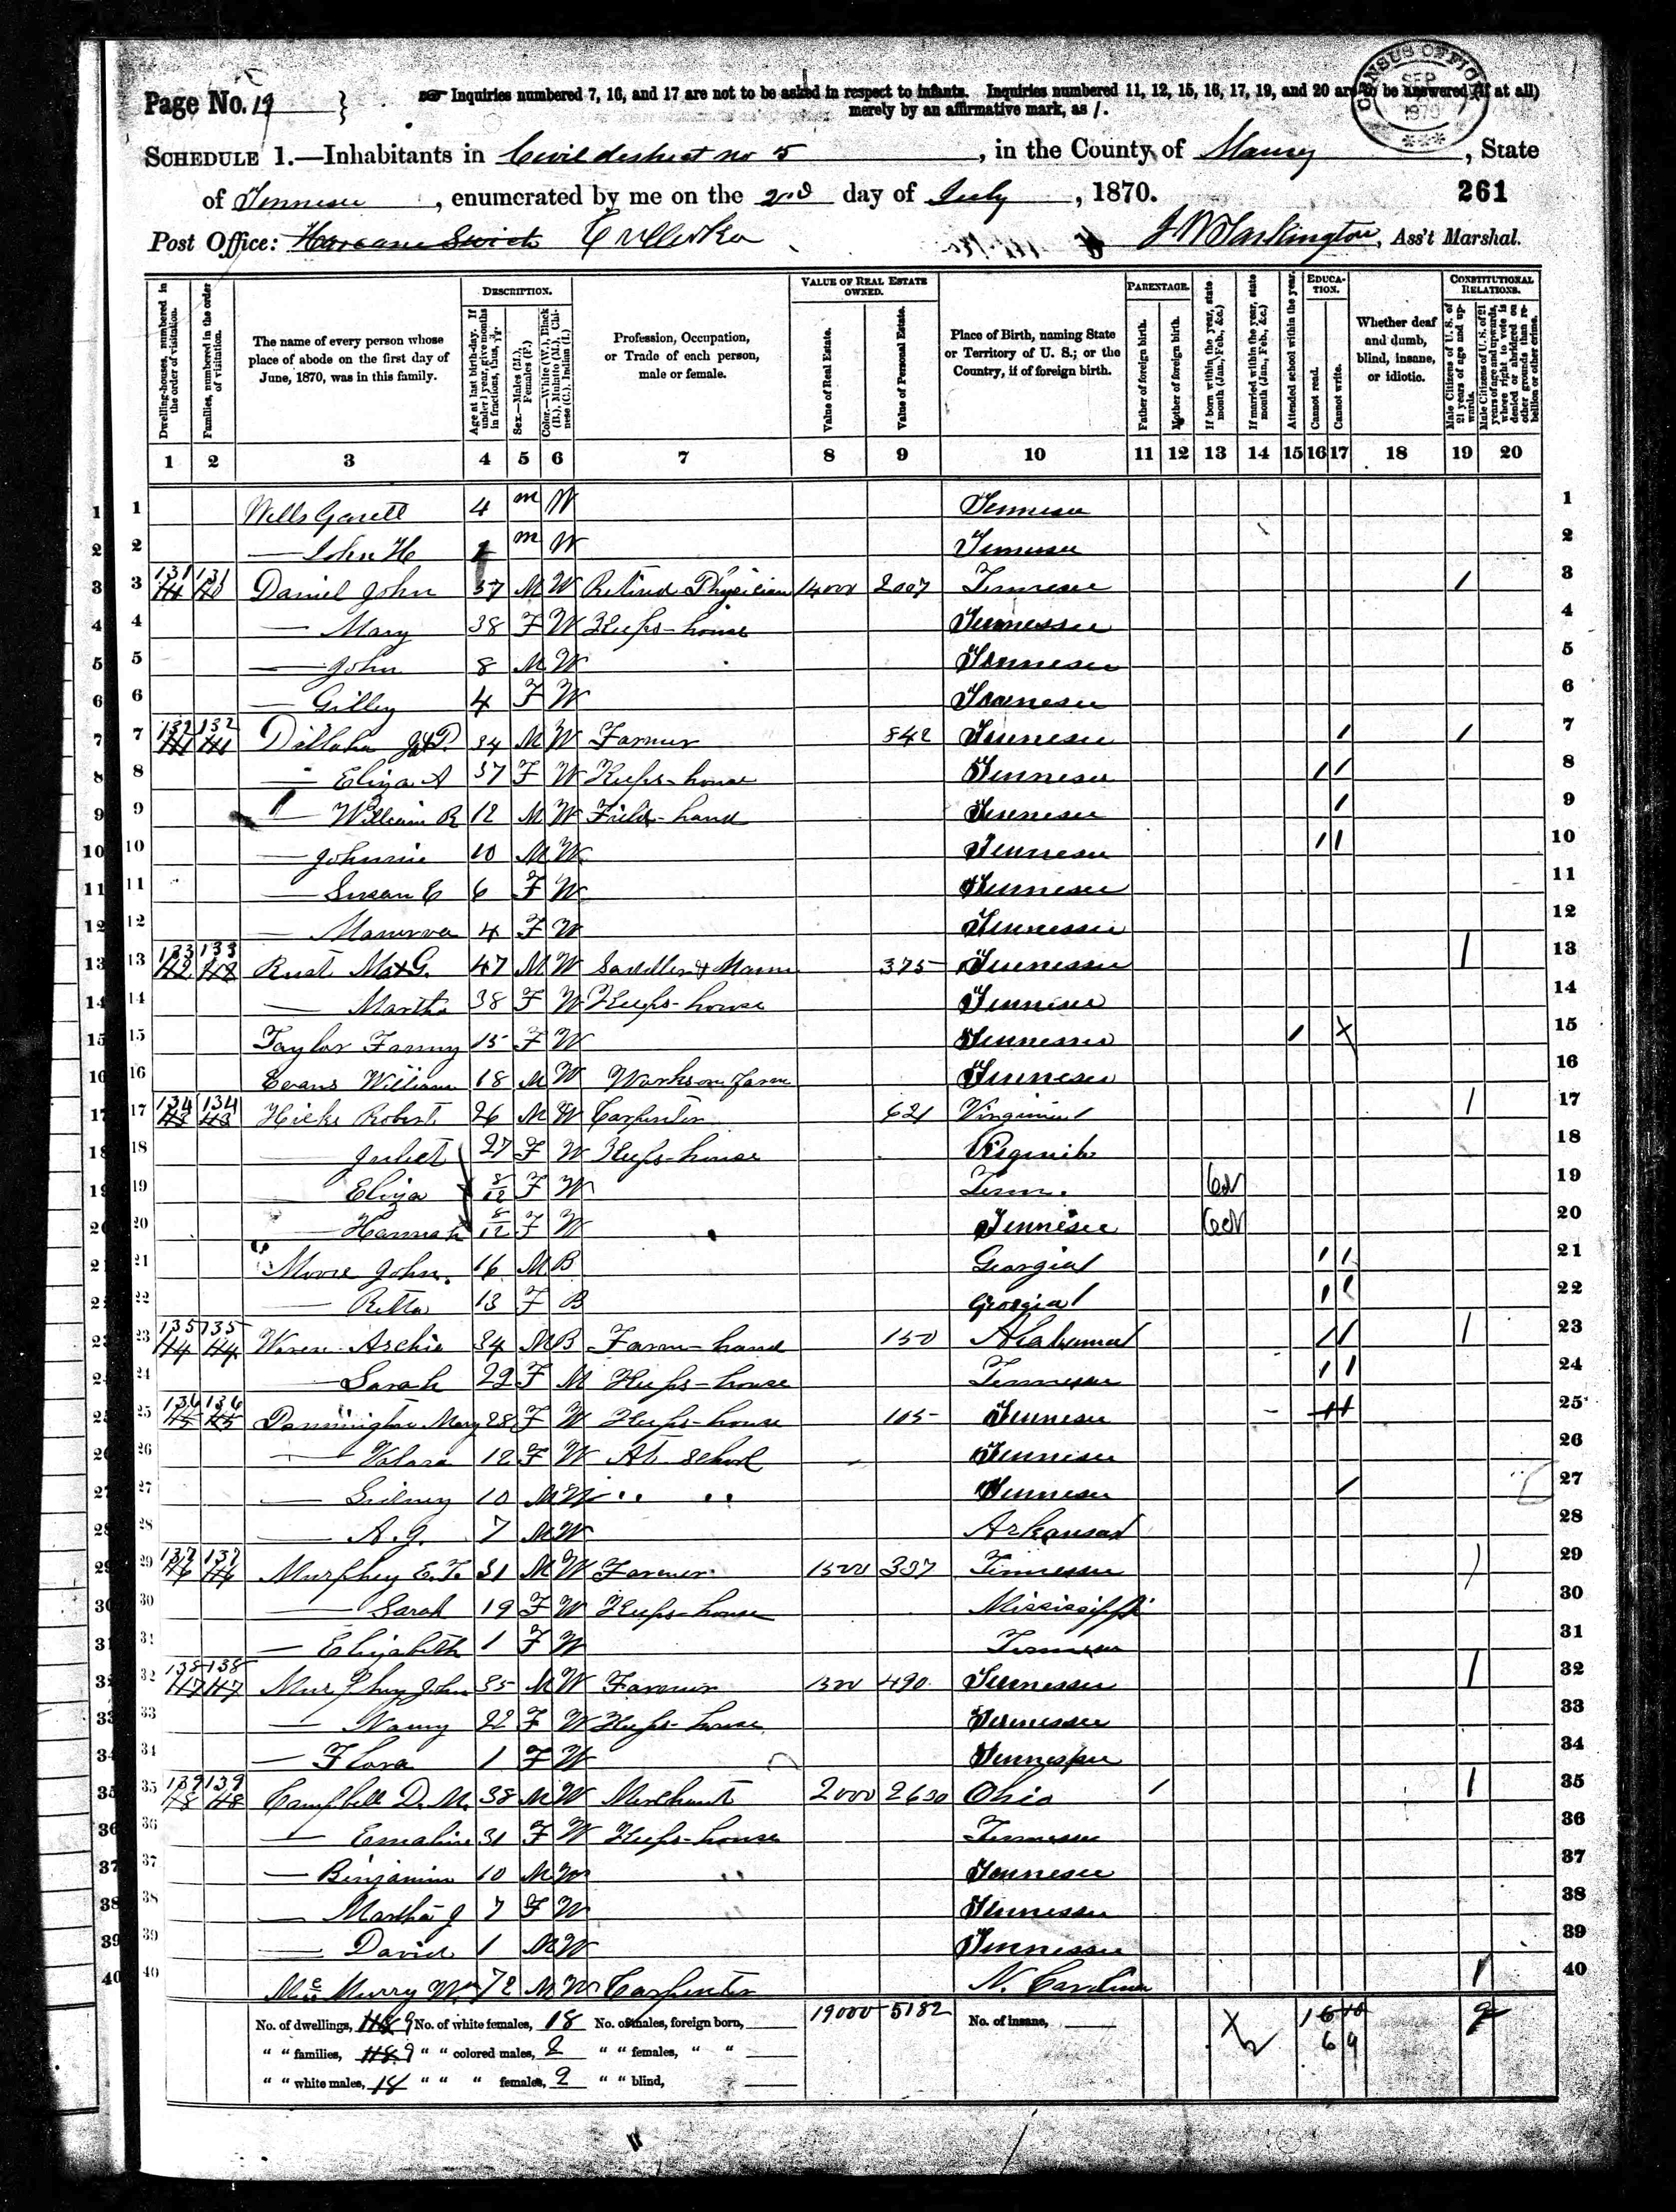 Page No. 19
Inquiries numbered 7, 16, and 17 are not to be asked in respect to infants. Inquiries numbered 11, 12, 15, 16, 17, 19, and 20 are to be answered (if at all)
merely by an affirmative mark, as /.
CENSUS OFFICE SEP 1870
SCHEDULE 1.—Inhabitants in Civil district no 5, in the County of Maury, State
of Tennessee, enumerated by me on the 2nd day of July, 1870. 261
Post Office: Culleoka Ass't Marshal.
Dwelling-houses, numbered in the order of visitation.
Families, numbered in the order of visitation.
The name of every person whose place of abode on the first day of June, 1870, was in this family.
DESCRIPTION.
Age at last birth-day. If under 1 year, give months in fractions, thus, 3/12.
Sex.—Males (M.), Females (F.)
Color.—White (W.), Black (B.), Mulatto (M.), Chinese (C.), Indian (I.)
Profession, Occupation, or Trade of each person, male or female.
VALUE OF REAL ESTATE OWNED.
Value of Real Estate.
Value of Personal Estate.
Place of Birth, naming State or Territory of U. S.; or the Country, if of foreign birth.
PARENTAGE.
Father of foreign birth.
Mother of foreign birth.
If born within the year, state month (Jan., Feb., &c.)
If married within the year, state month (Jan., Feb., &c.)
Attended school within the year.
EDUCATION.
Cannot read.
Cannot write.
Whether deaf and dumb, blind, insane, or idiotic.
CONSTITUTIONAL RELATIONS.
Male Citizens of U. S. of 21 years of age and upwards.
Male Citizens of U. S. of 21 years of age and upwards, where right to vote is denied or abridged on other grounds than rebellion or other crime.
1 2 3 4 5 6 7 8 9 10 11 12 13 14 15 16 17 18 19 20
1 Wells Garett 4 m W Tennessee 1
2 — John H m W Tennessee 2
3 131 131 Daniel John 57 M W Retired Physician 14000 2007 Tennessee / 3
4 — Mary 38 F W Keeps-house Tennessee 4
5 — John 8 M W Tennessee 5
6 — Gilley 4 F W Tennessee 6
7 132 132 34 M W Farmer 842 Tennessee / / 7
8 — Eliza A 37 F W Keeps-house Tennessee / / 8
9 — William R 12 M W Field-hand Tennessee / 9
10 — Johnnie 10 M W Tennessee / / 10
11 — Susan E 6 F W Tennessee 11
12 — Manerva 4 F W Tennessee 12
13 133 133 Rust 47 M W Saddle & 375 Tennessee / 13
14 — Martha 38 F W Keeps-house Tennessee 14
15 Taylor Fanny 15 F W Tennessee / X 15
16 Evans William 18 M W Works on farm Tennessee 16
17 134 134 Hicks Robert 26 M W Carpenter 621 Virginia / 17
18 — Juliet 27 F W Keeps-house Virginia 18
19 — Eliza 8/12 F W Tenn. 19
20 — Hannah 8/12 F W Tennessee 20
21 Moore John 16 M B Georgia / / 21
22 — Retta 13 F B Georgia / / 22
23 135 135 Archie 34 M B Farm-hand 150 Alabama / / / 23
24 — Sarah 22 F M Keeps-house Tennessee / / 24
25 136 136 Mary 28 F W Keeps-house 105 Tennessee 25
26 — 12 F W At School Tennessee 26
27 — Sidney 10 M W " " Tennessee / 27
28 — A. J. 7 M W Arkansas 28
29 137 137 Murphey E. T. 31 M W Farmer 1500 337 Tennessee / 29
30 — Sarah 19 F W Keeps-house Mississippi 30
31 — Elizabeth 1 F W Tennessee 31
32 138 138 Murphey John 35 M W Farmer 1500 490 Tennessee / 32
33 — Nancy 22 F W Keeps-house Tennessee 33
34 — Flora 1 F W Tennessee 34
35 139 139 Campbell D. M. 38 M W Merchant 2000 2630 Ohio / / 35
36 — Emaline 31 F W Keeps-house Tennessee 36
37 — Benjamin 10 M W " Tennessee 37
38 — Martha J 7 F W Tennessee 38
39 — David 1 M W Tennessee 39
40 McMurry Wm 72 M W Carpenter N. Carolina / 40
No. of dwellings, 9 No. of white females, 18 No. of males, foreign born, 19000 5182 No. of insane,
" " families, 9 " " colored males, 2 " " females, " "
" " white males, 18 " " " females, 2 " " blind,